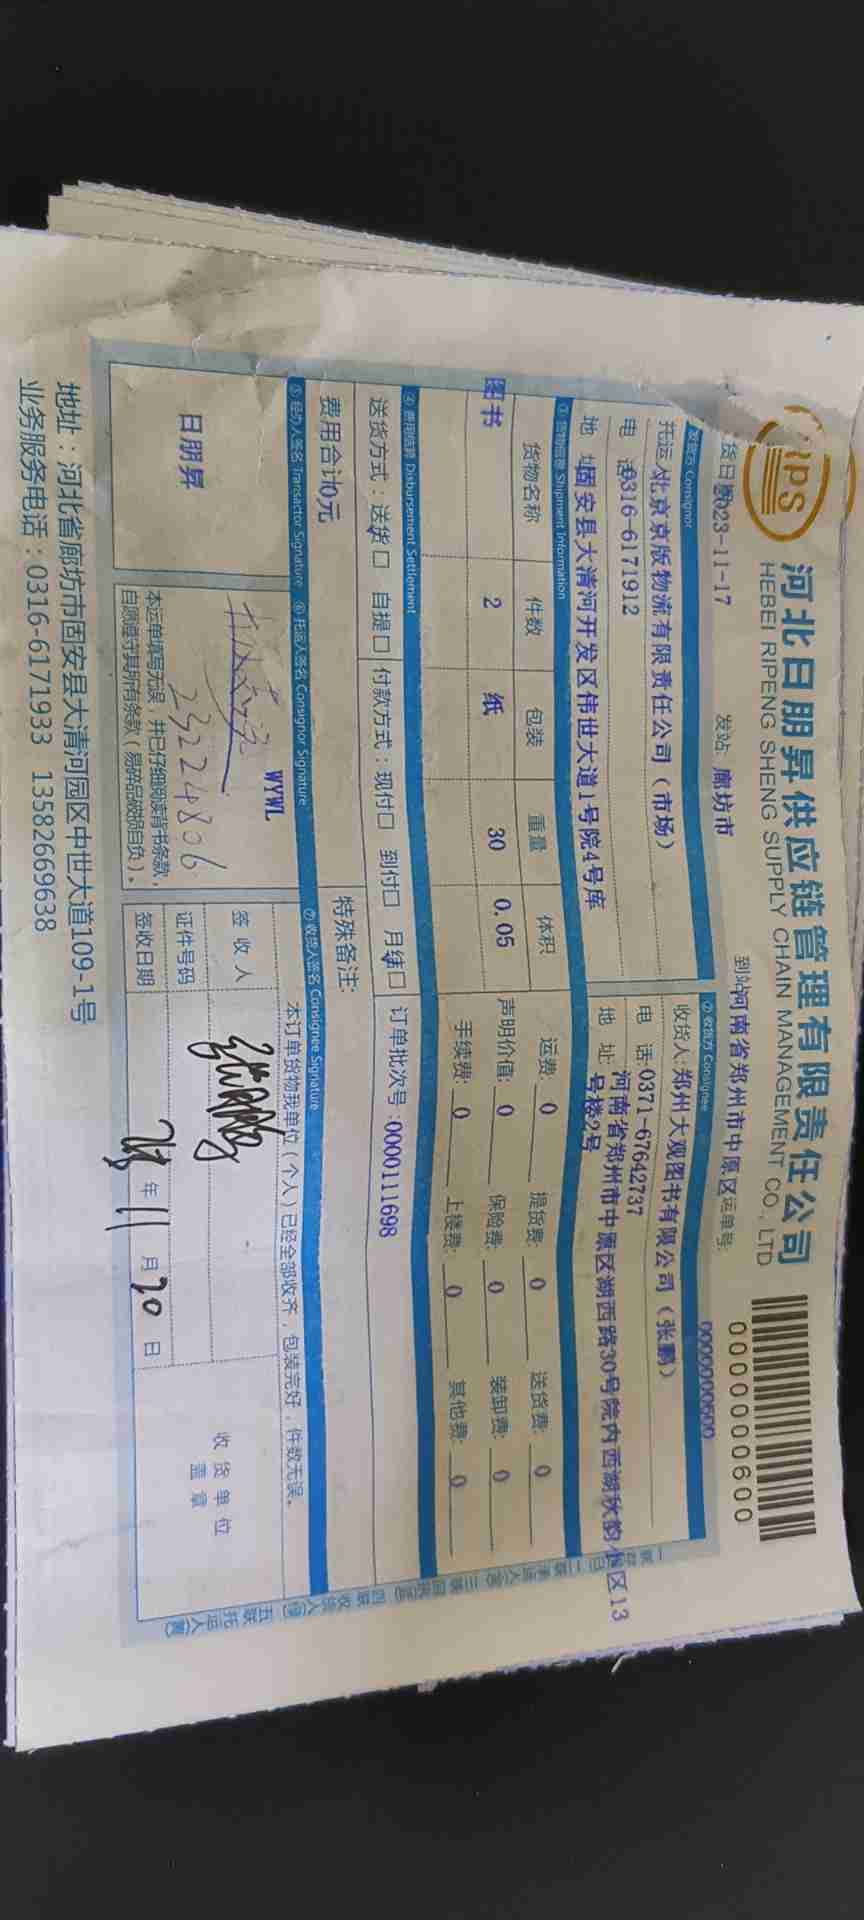 河北日朋昇供应链管理有限责任公司
HEBEI RIPENG SHENG SUPPLY CHAIN MANAGEMENT CO., LTD
0000000600
货日期2023-11-17 发站: 廊坊市 到站河南省郑州市中原区运单号: 0000000600
发货方 Consignor
托运人北京京版物流有限责任公司（市场）
电 话0316-6171912
地 址固安县大清河开发区伟世大道1号院4号库
② 收货方 Consignee
收货人:郑州大观图书有限公司（张鹏）
电 话:0371-67642737
地 址:河南省郑州市中原区湖西路30号院内西湖秋韵小区13
号楼2号
③ 货物信息 Shipment Information
货物名称 件数 包装 重量 体积
图书 2 纸 30 0.05
运费: 0 提货费: 0 送货费: 0
声明价值: 0 保险费: 0 装卸费: 0
手续费: 0 上楼费: 0 其他费: 0
④ 费用结算 Disbursement Settlement
送货方式：送货 自提 付款方式：现付 到付 月结 订单批次号:0000111698
费用合计0元
特殊备注:
⑤ 经办人签名 Transactor Signature ⑥ 托运人签名 Consignor Signature ⑦ 收货人签名 Consignee Signature
日朋昇
WYWL
23224806
本运单填写无误，并已仔细阅读背书条款，
自愿遵守其所有条款（易碎品破损自负）。
本订单货物我单位（个人）已经全部收齐，包装完好，件数无误。
签收人 张鹏
证件号码
签收日期 23年11月20日
收货单位
盖章
地址：河北省廊坊市固安县大清河园区中世大道109-1号
业务服务电话：0316-6171933 13582669638